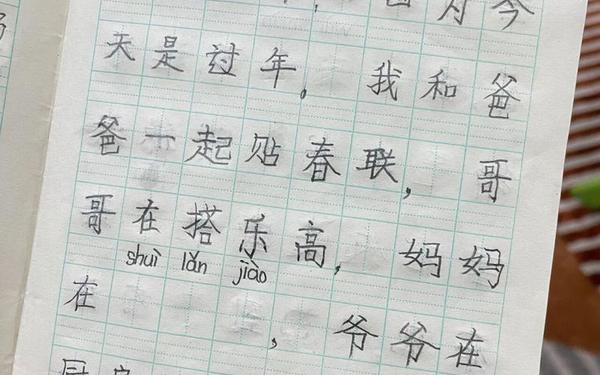 为今
天是过年。我和爸
爸一起贴春联，哥
哥在搭乐高，妈妈
shuì lǎn jiào
在，爷爷在